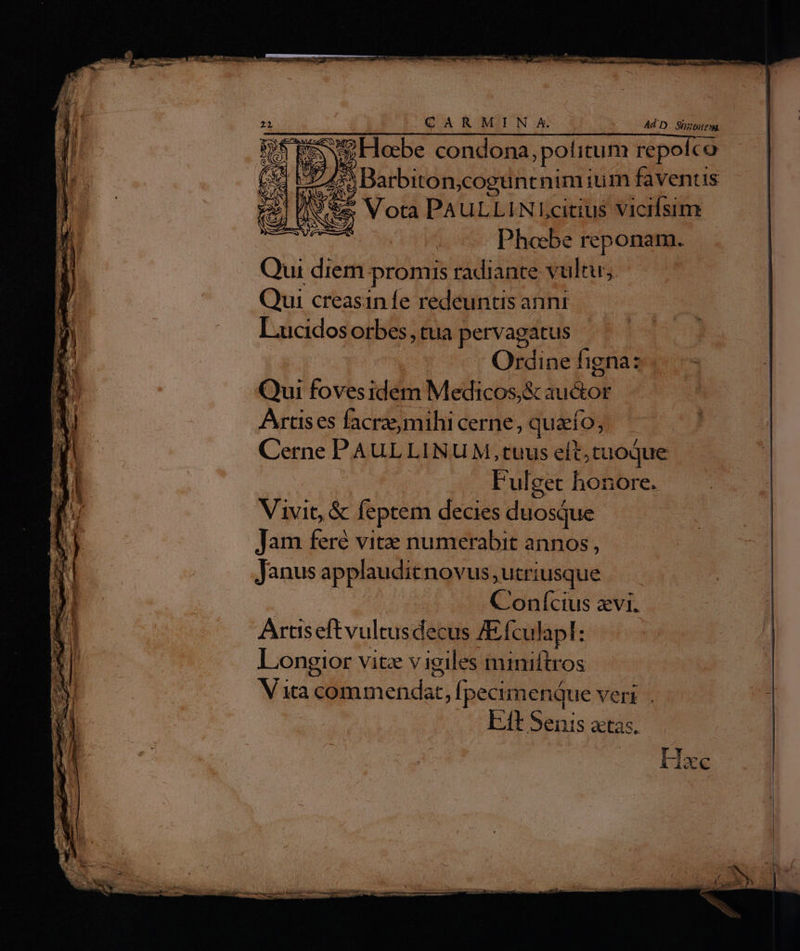 22 CARMINA. Ad D. Suzonem
PHœbe condona, poſitum repoſco
Barbiton, cogunt nimium faventis
Vota PAULLINI, citius viciſsim
Phœbe reponam.
Qui diem promis radiante vultu,
Qui creas in ſe redeuntis anni
Lucidos orbes, tua pervagatus
Ordine ſigna:
Qui foves idem Medicos, & auctor
Artis es ſacræ, mihi cerne, quæſo,
Cerne PAULLINUM, tuus eſt, tuoque
Fulget honore.
Vivit, & ſeptem decies duosque
Jam ferè vitæ numerabit annos,
Janus applaudit novus, utriusque
Conſcius ævi.
Artis eſt vultus decus Æſculapî:
Longior vitæ vigiles miniſtros
Vita commendat, ſpecimenque veri
Eſt Senis ætas.
Hæc